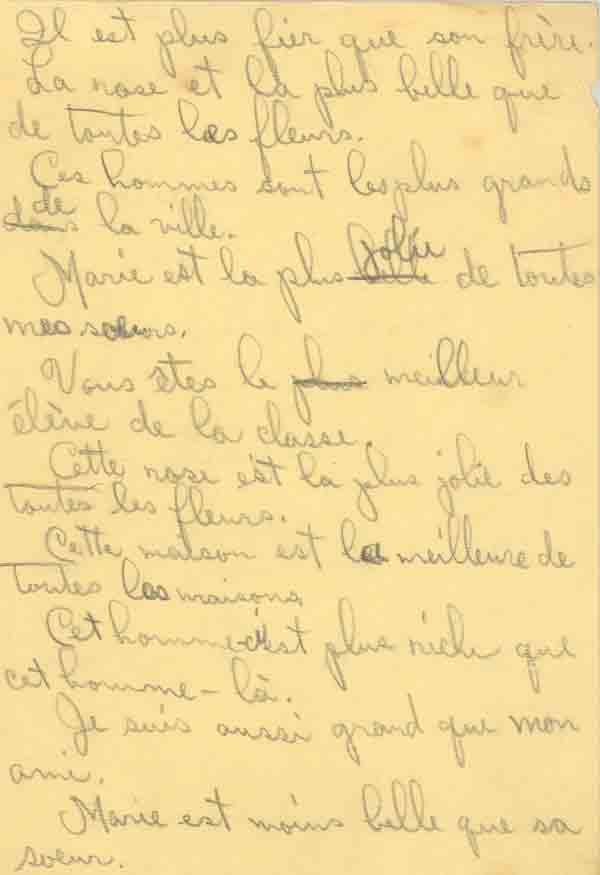 Il est plus fier que son frère.
La rose et la plus belle que
de toutes les fleurs.
Ces hommes sont les plus grands
de
dans la ville.
jolie
Marie est la plus belle de toutes
mes soeurs.
Vous êtes le plus meilleur
élève de la classe.
Cette rose est la plus jolie des
toutes les fleurs.
Cette maison est la meilleure de
toutes les maisons.
Cet homme-ci est plus riche que
cet homme-là.
Je suis aussi grand que mon
ami.
Marie est moins belle que sa
soeur.